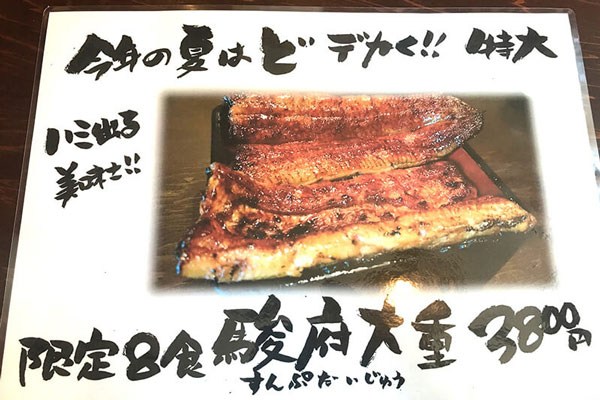 今年の夏はどデカく!! 特大
ハミ出る
美味さ!!
限定8食 駿府大重 3800円
すんぷだいじゅう